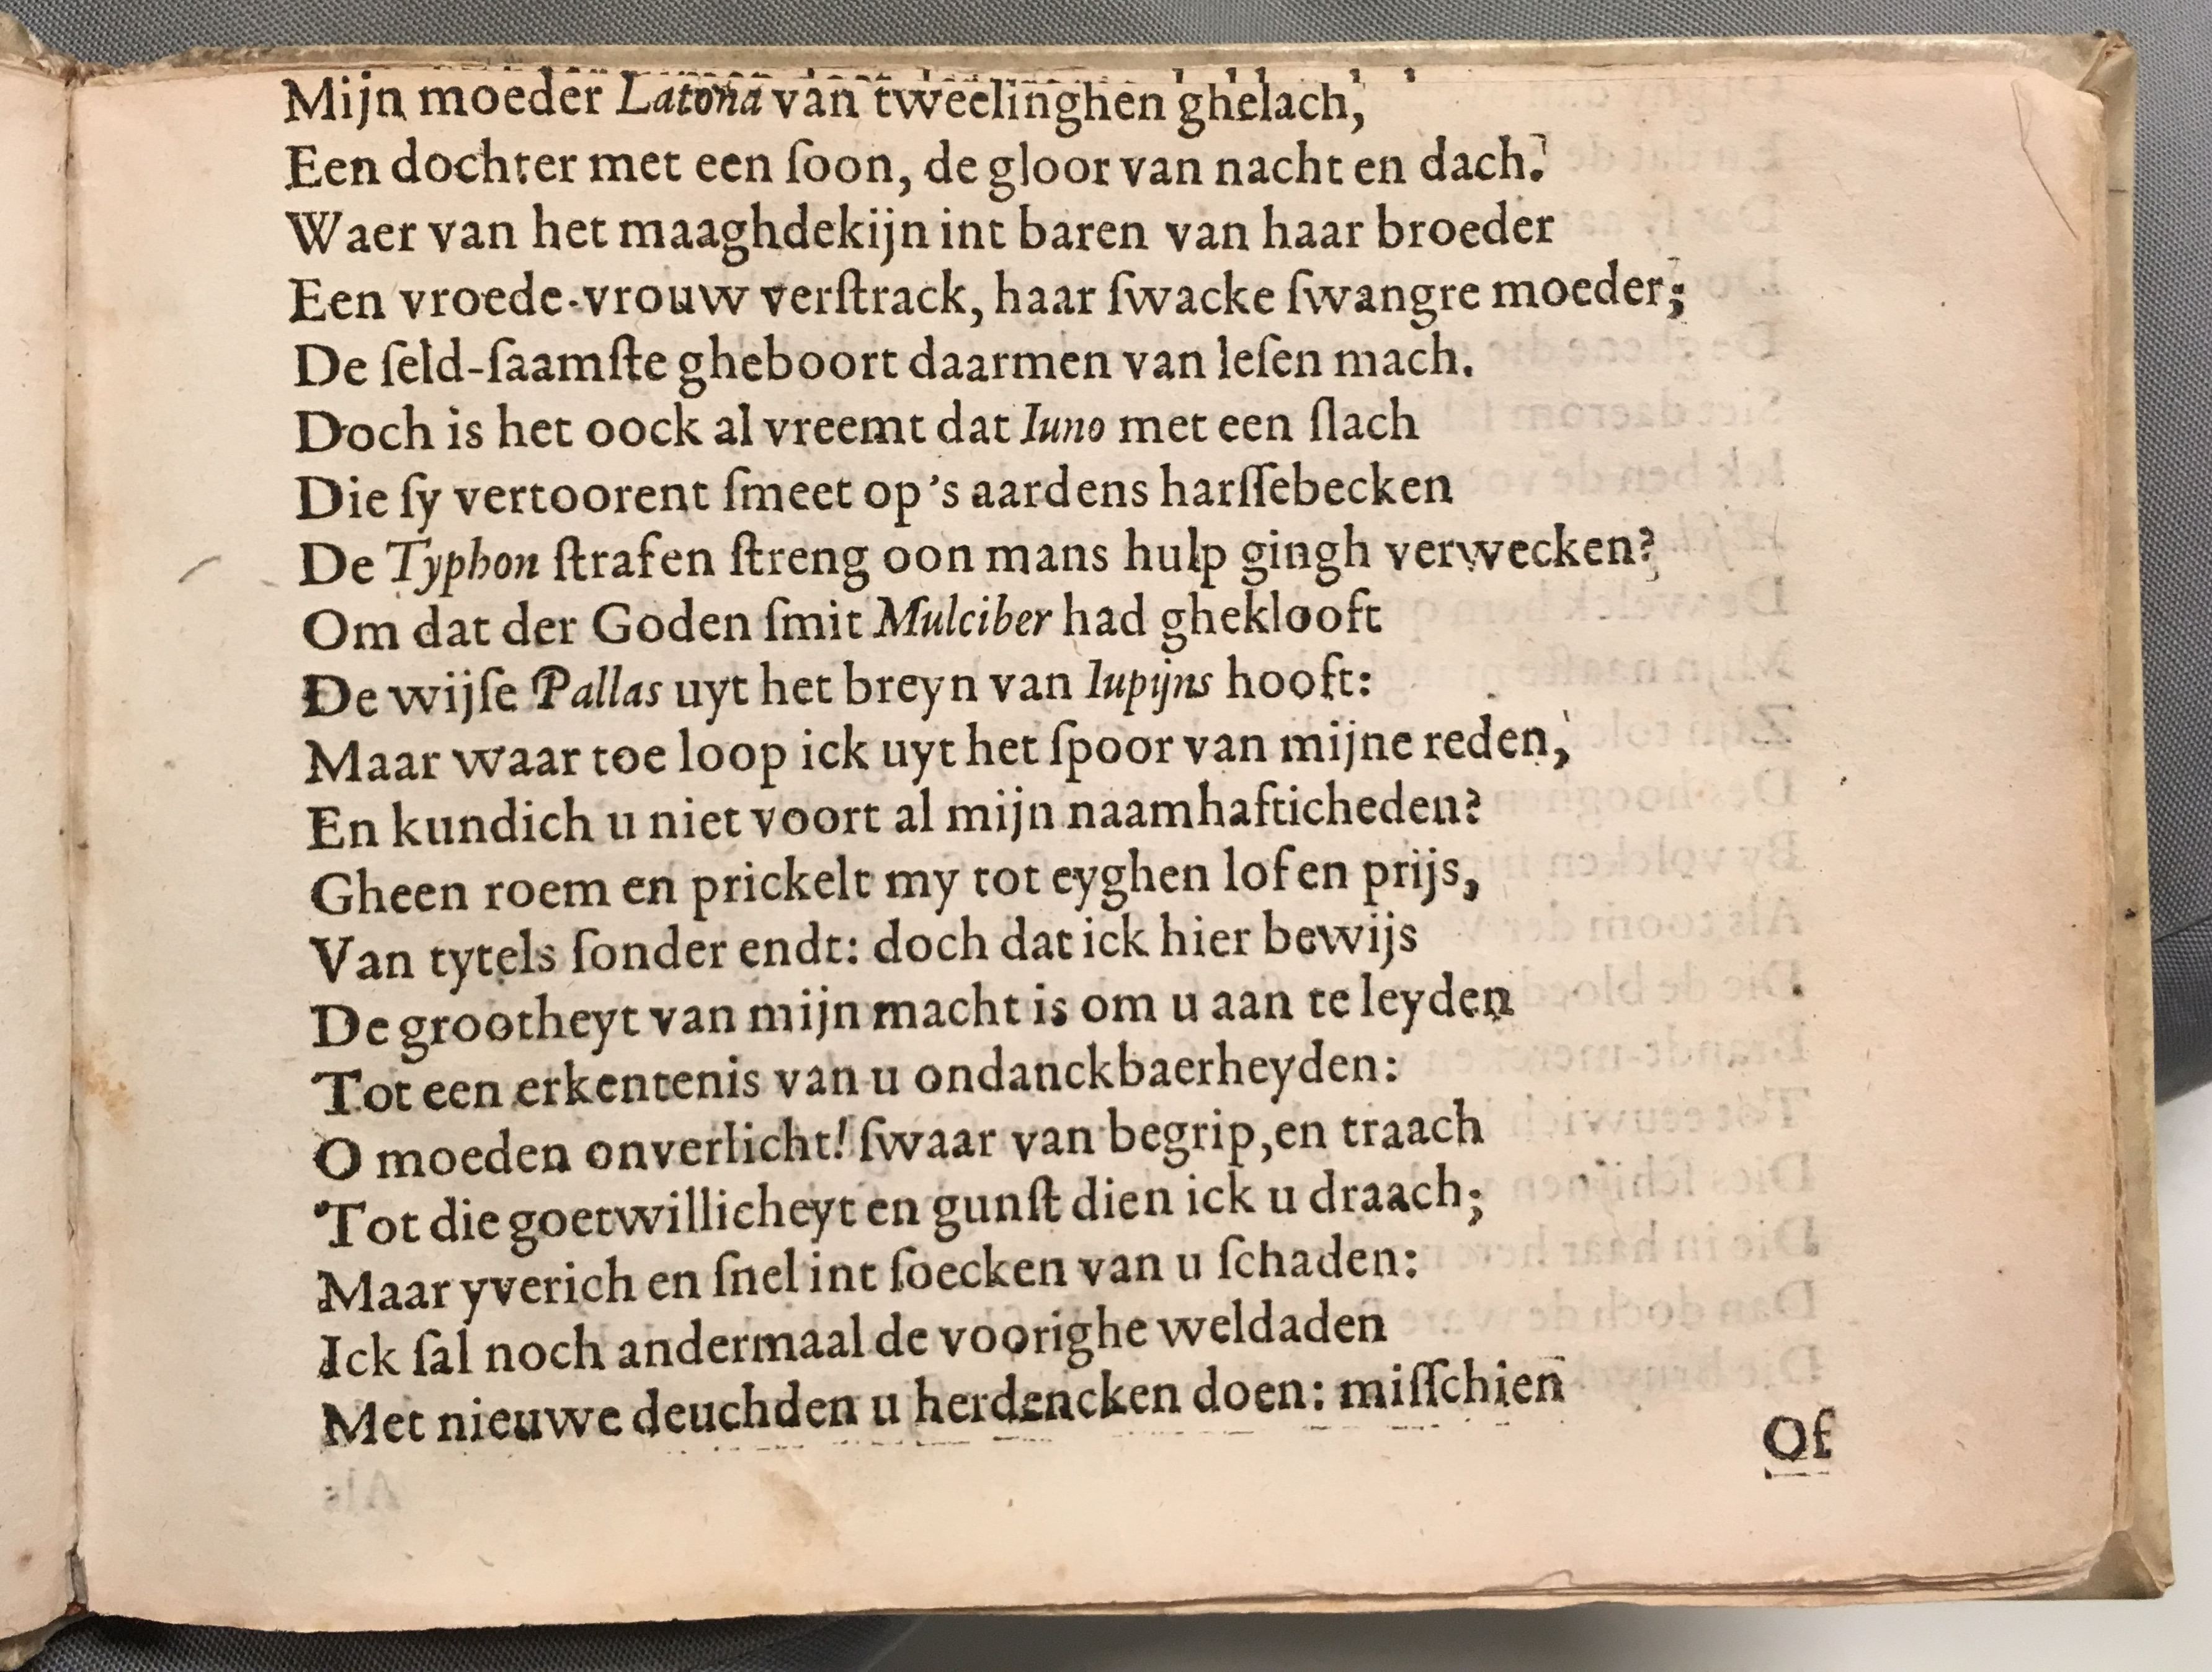 Mijn moeder Latona van tweelinghen ghelach,
Een dochter met een ſoon, de gloor van nacht en dach.
Waer van het maaghdekijn int baren van haar broeder
Een vroede-vrouw verſtrack, haar ſwacke ſwangre moeder;
De ſeld-ſaamſte gheboort daarmen van leſen mach.
Doch is het oock al vreemt dat Iuno met een ſlach
Die ſy vertoorent ſmeet op 's aardens harſſebecken
De Typhon ſtraf en ſtreng oon mans hulp gingh verwecken?
Om dat der Goden ſmit Mulciber had gheklooft
De wijſe Pallas uyt het breyn van Iupijns hooft:
Maar waar toe loop ick uyt het ſpoor van mijne reden,
En kundich u niet voort al mijn naamhafticheden?
Gheen roem en prickelt my tot eyghen lof en prijs,
Van tytels ſonder endt: doch dat ick hier bewijs
De grootheyt van mijn macht is om u aan te leyden
Tot een erkentenis van u ondanckbaerheyden:
O moeden onverlicht! ſwaar van begrip, en traach
Tot die goetwillicheyt en gunſt dien ick u draach;
Maar yverich en ſnel int ſoecken van u ſchaden:
Ick ſal noch andermaal de voorighe weldaden
Met nieuwe deuchden u herdencken doen: miſſchien
Of